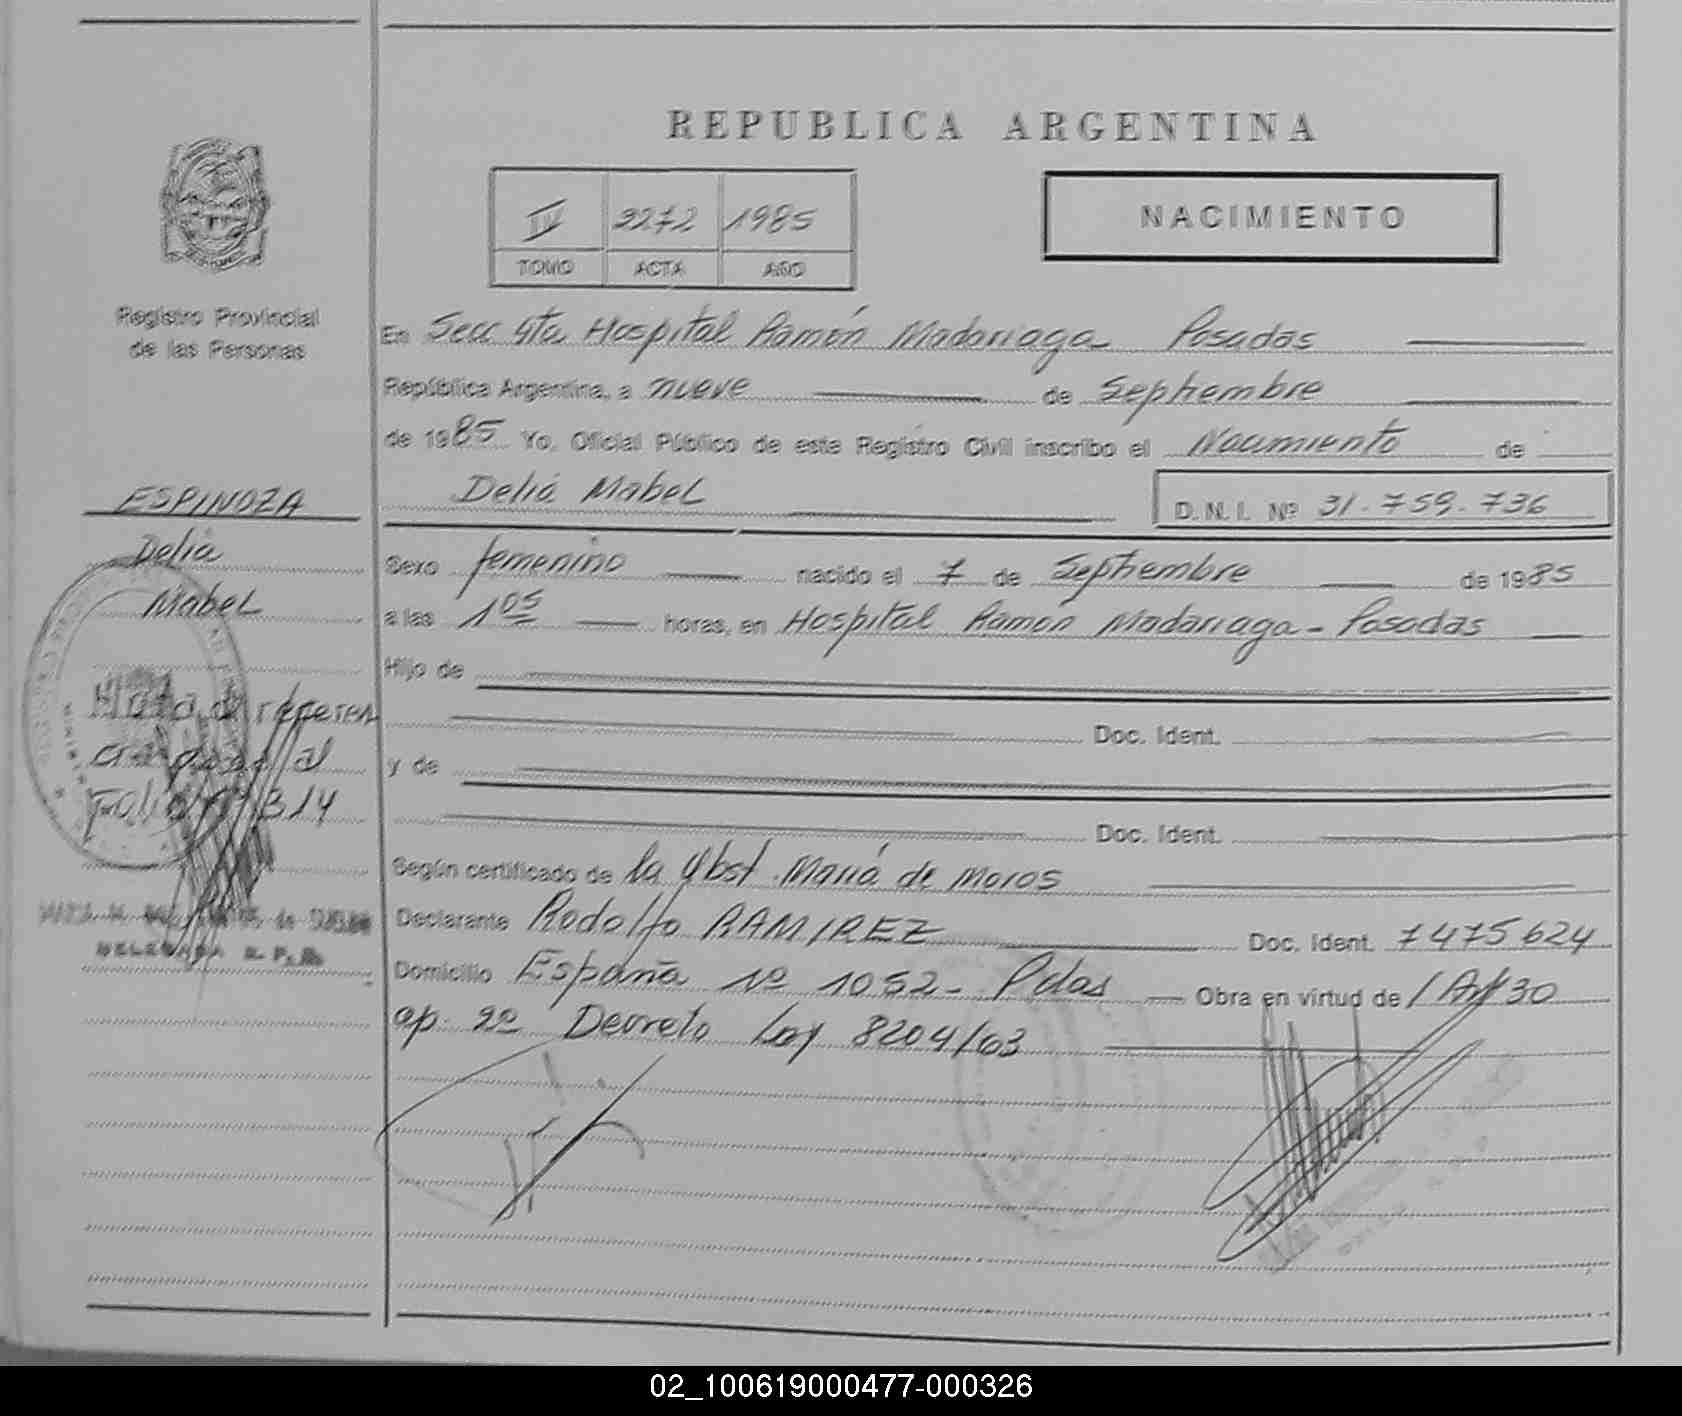 REPUBLICA ARGENTINA
IV 2272 1985
TOMO ACTA AÑO
NACIMIENTO
Registro Provincial
de las Personas
En Secc 4ta Hospital Ramón Madariaga Posadas
República Argentina, a nueve de Septiembre
de 1985 Yo, Oficial Público de este Registro Civil inscribo el Nacimiento de
Delia Mabel D.N.I. Nº 31.759.736
ESPINOZA
Delia
Mabel
Sexo femenino nacido el 7 de Septiembre de 1985
a las 1 05 horas, en Hospital Ramón Madariaga - Posadas
Hijo de
Doc. Ident.
y de
Doc. Ident.
Nota de referen
cia pase al
Folio Nº 314
Según certificado de la Obst. María de Moros
Declarante Rodolfo RAMIREZ Doc. Ident. 7475624
Domicilio España Nº 1052 - Pdas Obra en virtud de / Art 30
ap. 2º Decreto Ley 8204/63
DELEGADA R. P. P.
02_100619000477-000326